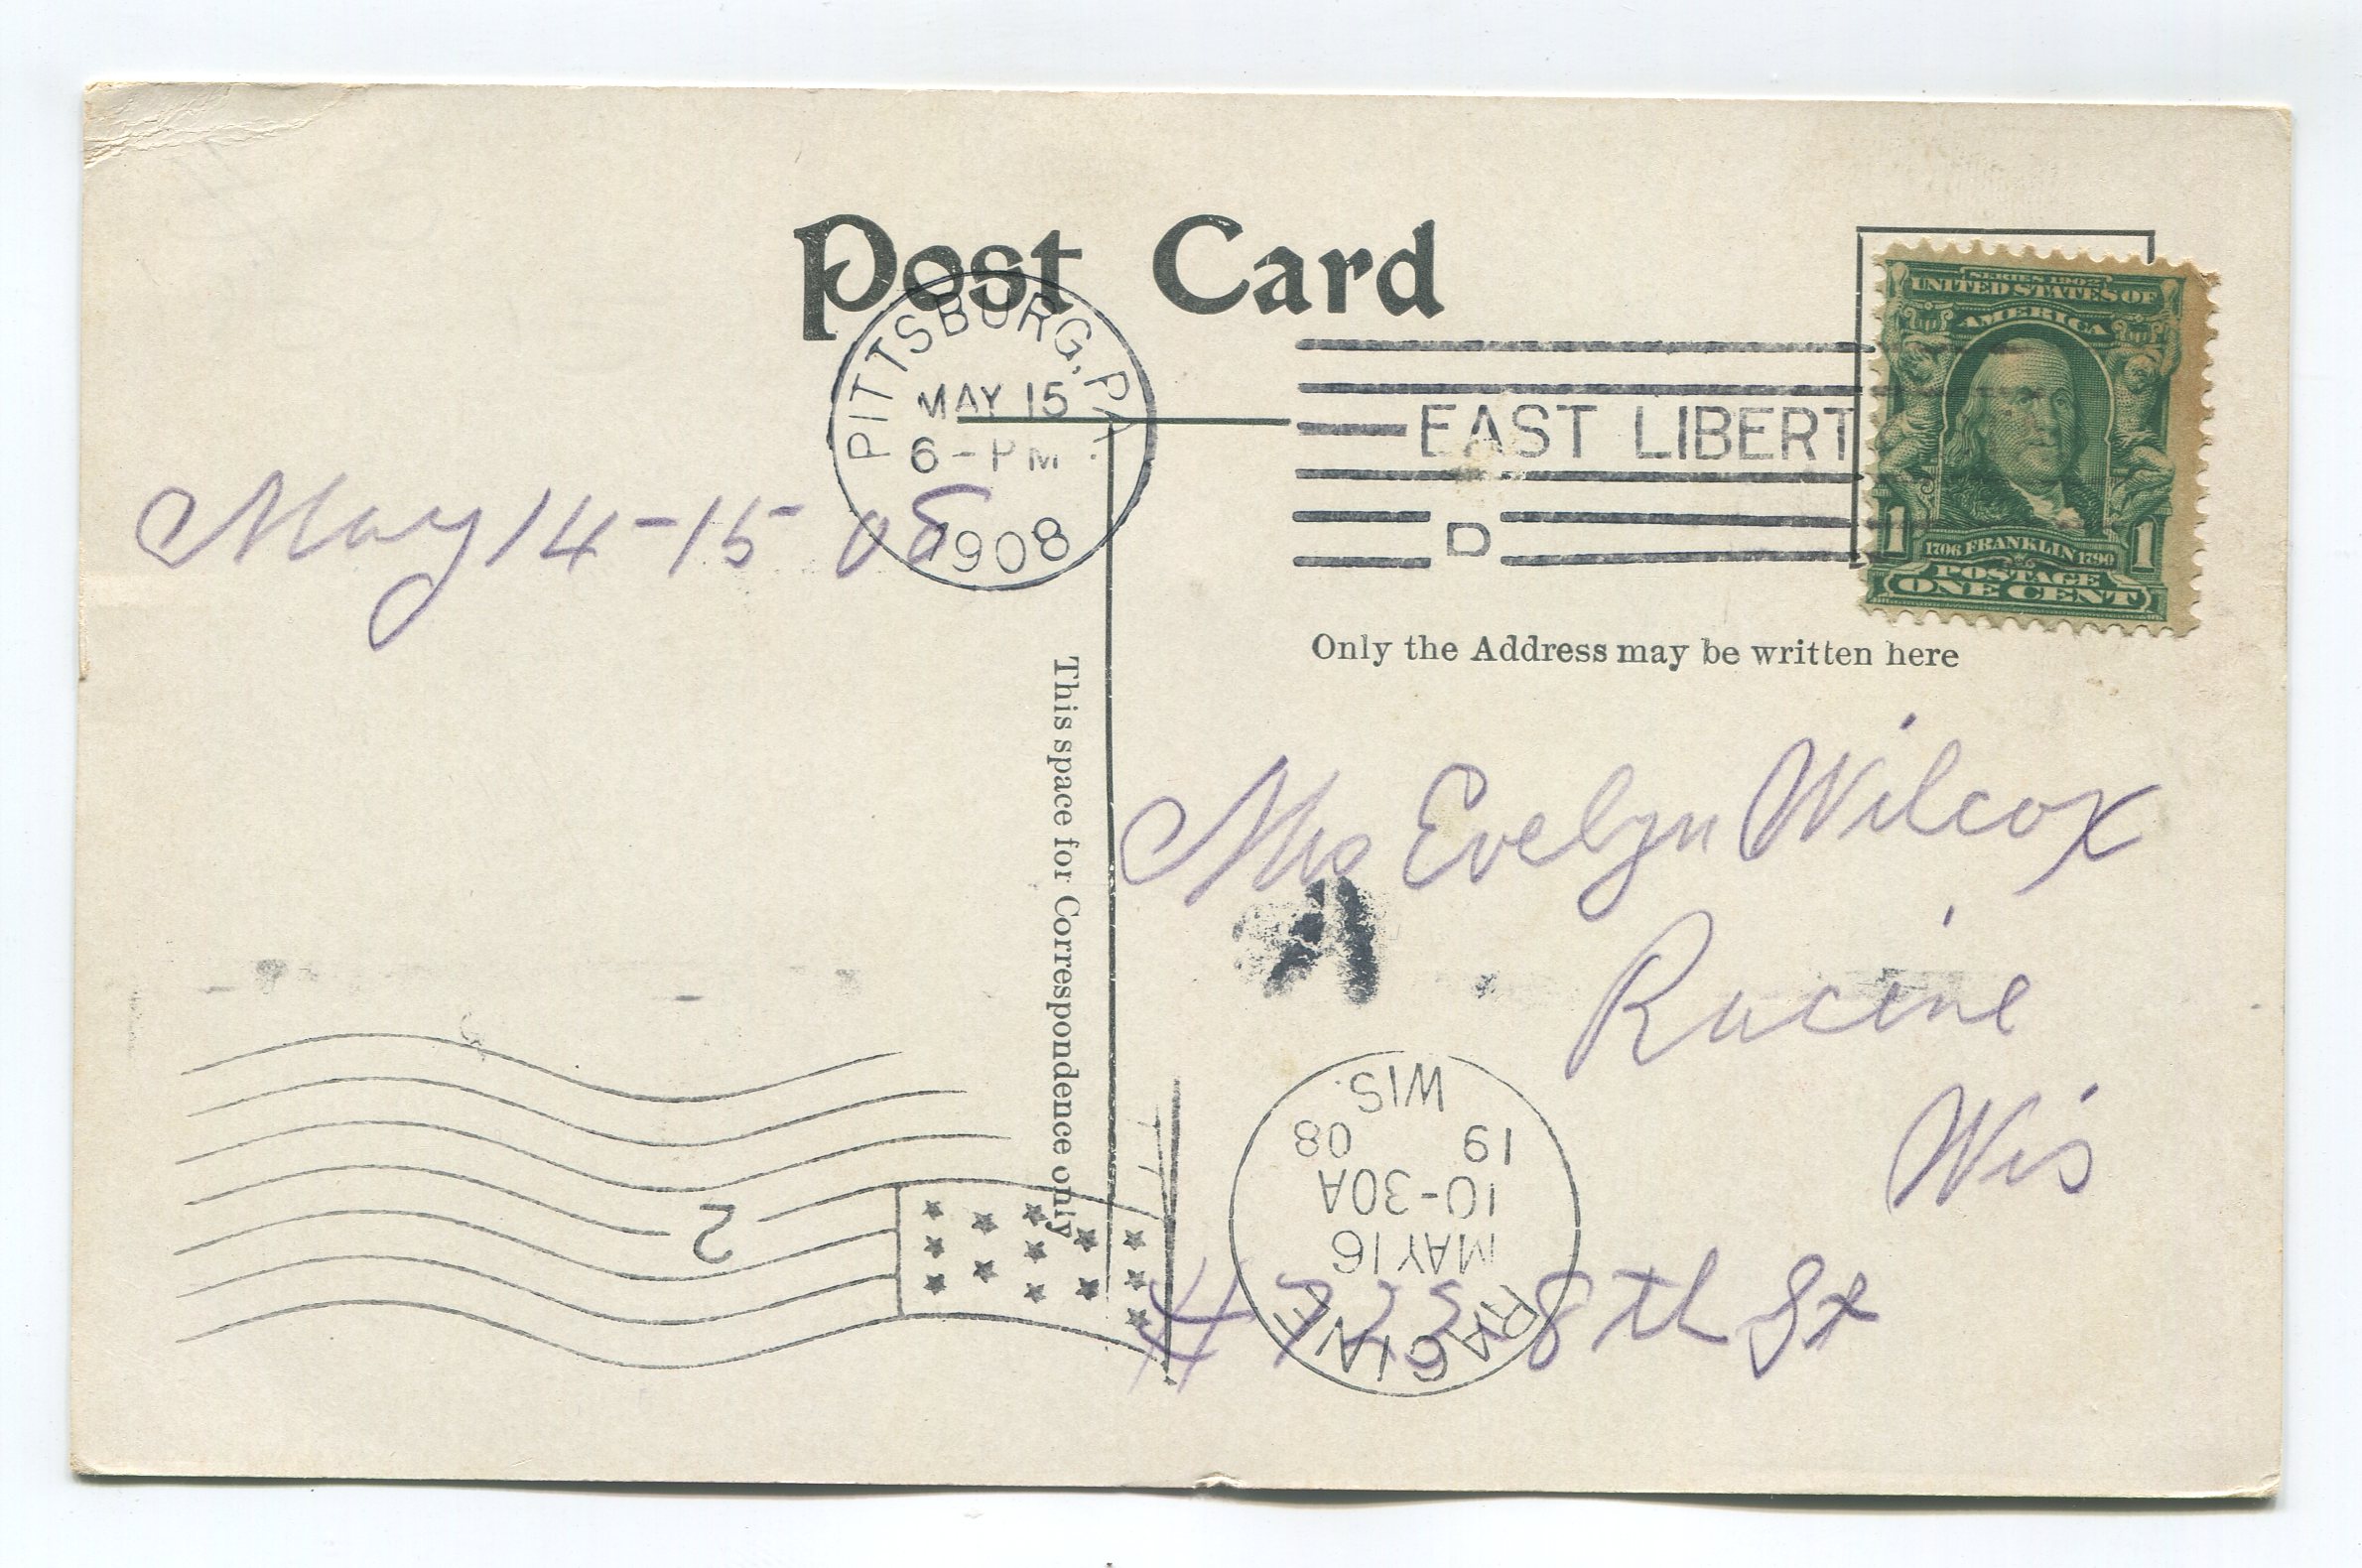 Post Card
PITTSBURG, PA.
MAY 15
6-PM
1908
EAST LIBERT
D
SERIES 1902
UNITED STATES OF
AMERICA
1 1
1706 FRANKLIN 1790
POSTAGE
ONE CENT
May 14-15 08
This space for Correspondence only
Only the Address may be written here
Mrs Evelyn Wilcox
Racine
Wis
# 8th St
RACINE
MAY 16
10-30A
19 08
WIS.
2